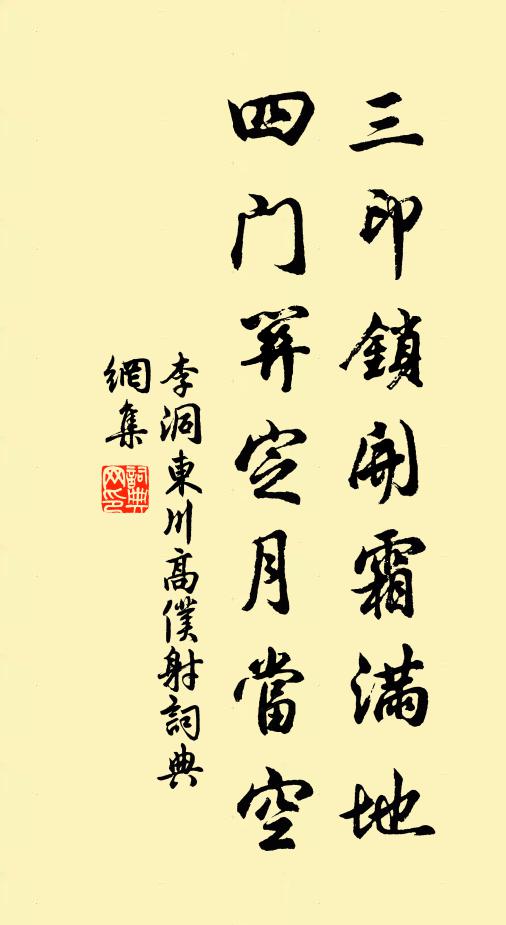 三印鎖開霜滿地
四门關定月當空
李洞東川高僕射詞典
網集
詞典
网印